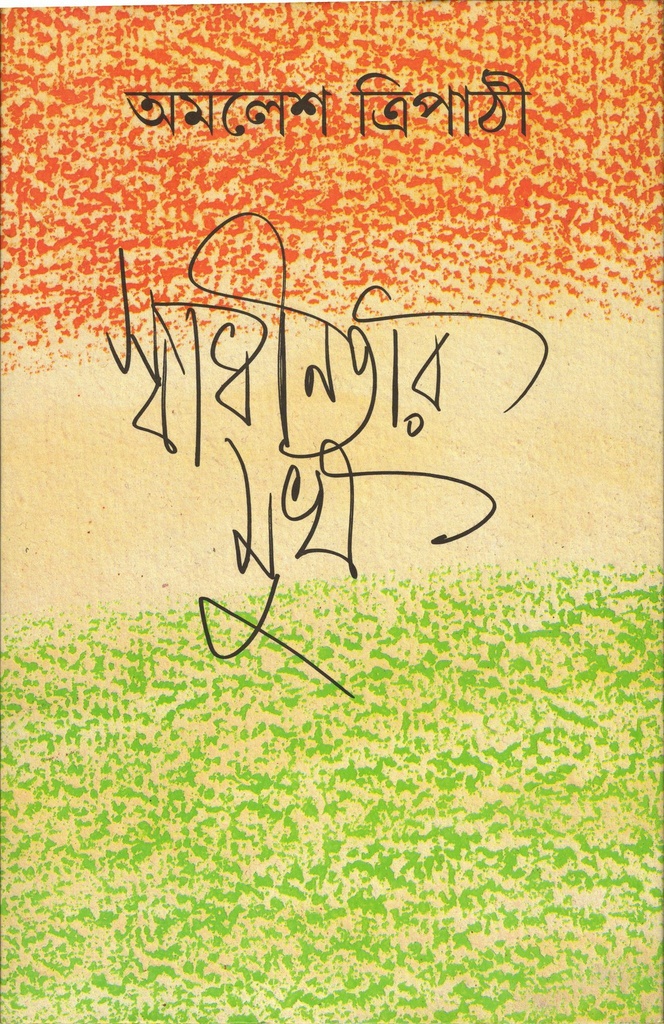 অমলেশ ত্রিপাঠী
স্বাধীনতার
মুখ